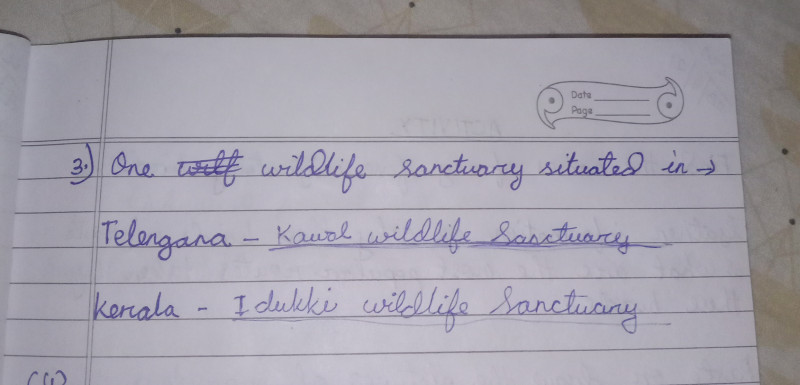 Date
Page
3.) One wildlife sanctuary situated in →
Telengana - Kawal wildlife Sanctuary
Kerala - Idukki wildlife Sanctuary